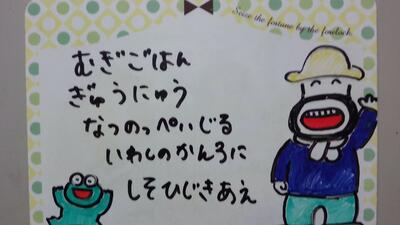 Seize the fortune by the forelock.
むぎごはん
ぎゅうにゅう
なつのっぺいじる
いわしのかんろに
しそひじきあえ